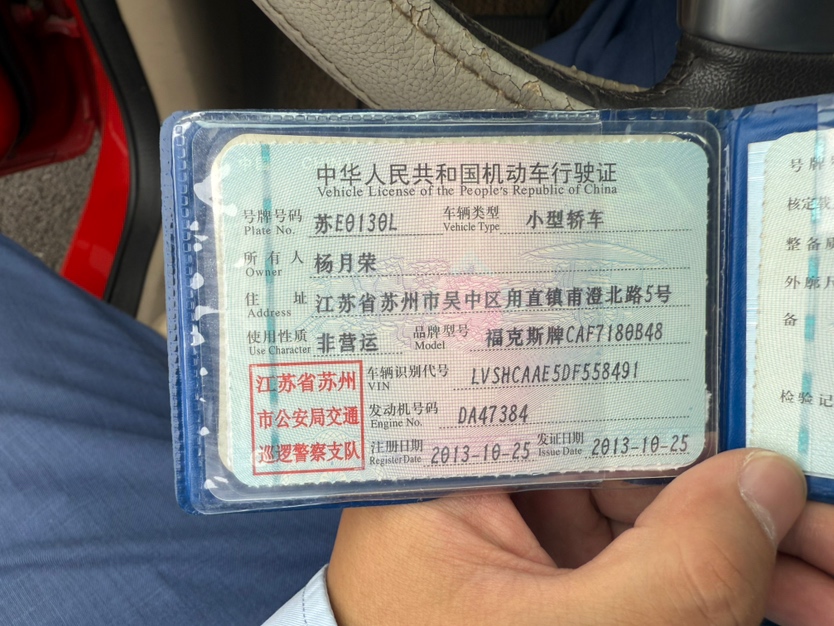 中华人民共和国机动车行驶证
Vehicle License of the People's Republic of China
号牌号码 苏E0130L 车辆类型 小型轿车
Plate No. Vehicle Type
所有人 杨月荣
Owner
住址 江苏省苏州市吴中区甪直镇甫澄北路5号
Address
使用性质 非营运 品牌型号 福克斯牌CAF7180B48
Use Character Model
江苏省苏州
市公安局交通
巡逻警察支队
车辆识别代号 LVSHCAAE5DF558491
VIN
发动机号码 DA47384
Engine No.
注册日期 2013-10-25 发证日期 2013-10-25
Register Date Issue Date
号牌
核定载
整备质
外廓尺
备
检验记